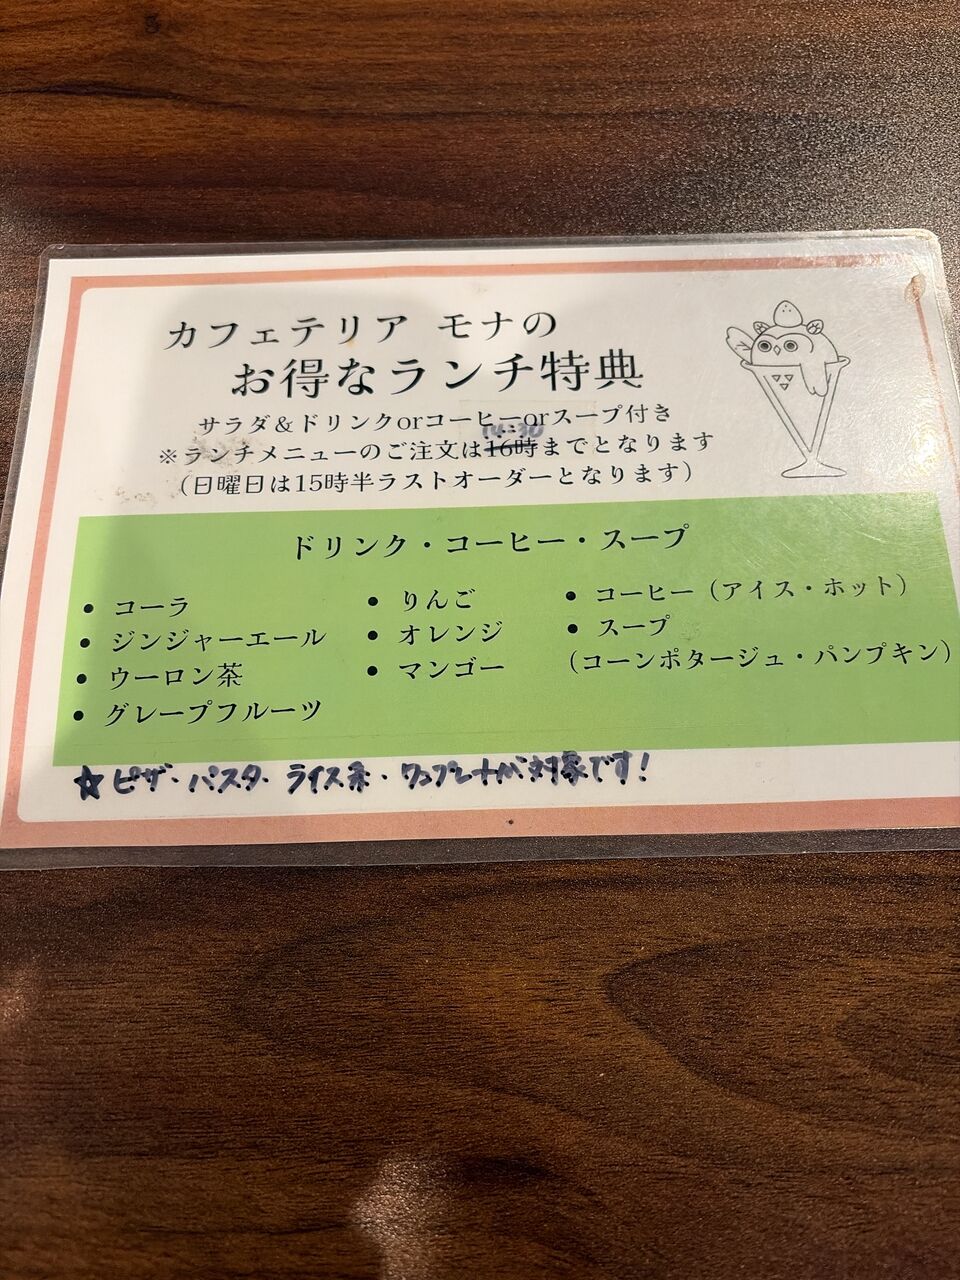 カフェテリア モナの
お得なランチ特典
サラダ＆ドリンクorコーヒーorスープ付き
14:30
※ランチメニューのご注文は16時までとなります
（日曜日は15時半ラストオーダーとなります）
ドリンク・コーヒー・スープ
• コーラ
• ジンジャーエール
• ウーロン茶
• グレープフルーツ
• りんご
• オレンジ
• マンゴー
• コーヒー（アイス・ホット）
• スープ
（コーンポタージュ・パンプキン）
☆ピザ・パスタ・ライス系・ワンプレートが対象です！